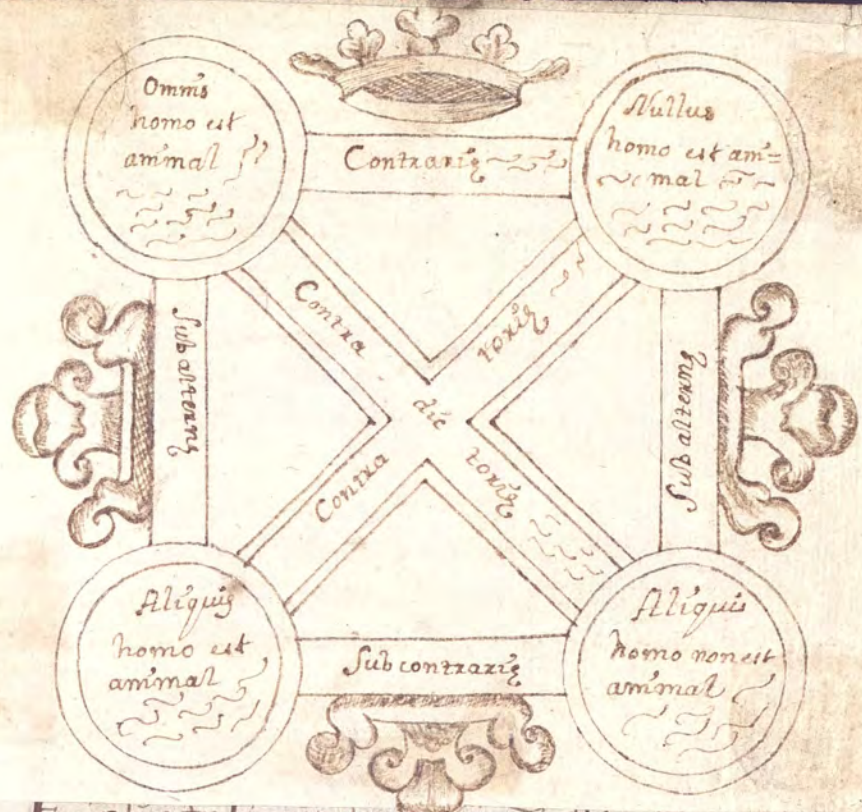 Omnis
homo est
animal
Contrarię
Nullus
homo est ani=
mal
Contra
dic
torię
Contra
torię
Subalternę
Subalternę
Aliquis
homo est
animal
Subcontrarię
Aliquis
homo non est
animal